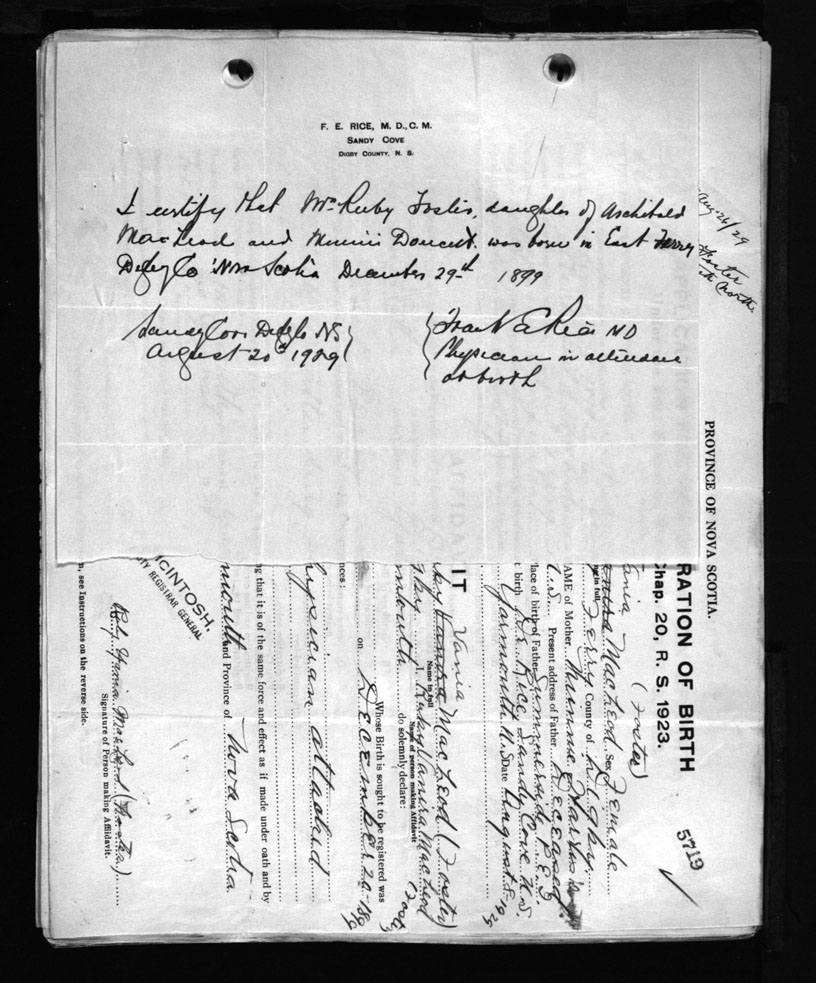 F. E. RICE, M. D., C. M.
SANDY COVE
DIGBY COUNTY, N. S.
I certify that Mrs Ruby Foster, daughter of Archibald
MacLeod and Minnie Doucett was born in East Ferry
Digby Co Nova Scotia December 29th 1899
Sandy Cove Digby Co NS
August 20th 1929
Frank E Rice MD
Physician in attendance
at birth
Aug 26/29
Foster
PROVINCE OF NOVA SCOTIA.
RATION OF BIRTH
Chap. 20, R. S. 1923.
5719
(Foster)
MacLeod Sex Female
ng in full
Ferry County of Digby
AME of Mother Minnie
Present address of Father Deceased
lace of birth of Father Summerside P.E.I.
t birth Dr. Rice Sandy Cove N.S.
Yarmouth N.S. Date August
IT
Vania
MacLeod (Foster)
Name in full
I, Ruby Vania MacLeod
Name of person making Affidavit
mouth do solemnly declare:
Whose Birth is sought to be registered was
on December 29-189
nces:
hysician attached
ng that it is of the same force and effect as if made under oath and by
mouth and Province of Nova Scotia.
McINTOSH,
TY REGISTRAR GENERAL
Ruby Vania MacLeod (Foster)
Signature of Person making Affidavit.
n, see Instructions on the reverse side.